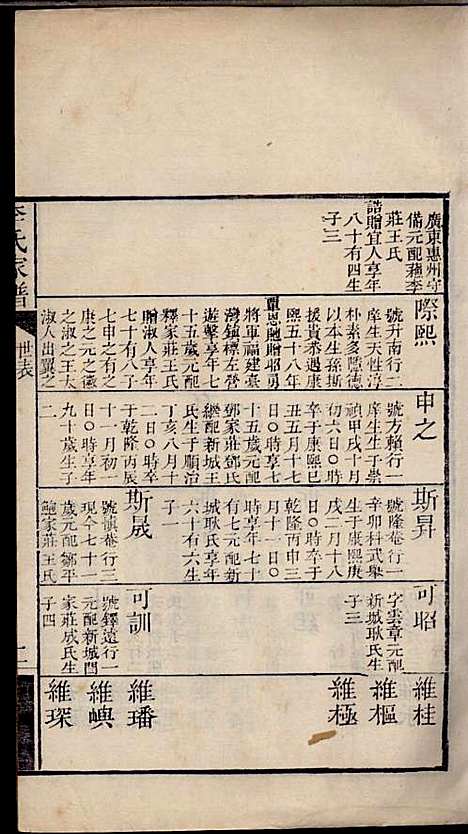 廣東惠州守
備元配藉李
莊王氏
誥贈宜人享年
八十有四生
子三
際熙
號丹南行二
庠生天性淳
朴素多隱德
以本生孫斯
援貴恭遇康
熙五十八年
覃恩貤贈昭勇
將軍福建臺
灣鎮標左營
遊擊享年七
十五歲元配
釋家莊王氏
贈淑人享年
七十有八子
七申之有之
康之元之徽
之淑之王太
淑人出翼之
申之
號方賴行一
庠生生于崇
禎甲戌十月
初六日時
卒于康熙巳
丑五月十七
日時享年七
十五歲元配
鄧家莊鄧氏
繼配新城王
氏生于順治
丁亥八月十
二日時卒
于乾隆丙辰
十一月初一
日時享年
九十歲生子
二
斯昇
號隆菴行一
辛卯科武舉
生于康熙庚
戌二月十八
日時卒于
乾隆丙申三
月十一日
時享年七十
有七元配新
城耿氏享年
六十有六生
子一
斯晟
號愼菴行三
現今七十一
歲元配鄒平
鮑家莊王氏
可昭
字雲章元配
新城耿氏生
子三
可訓
號鐸遠行一
元配新城門
家莊成氏生
子四
維桂
維樞
維極
維璠
維嶼
維琛
李氏家譜
世表